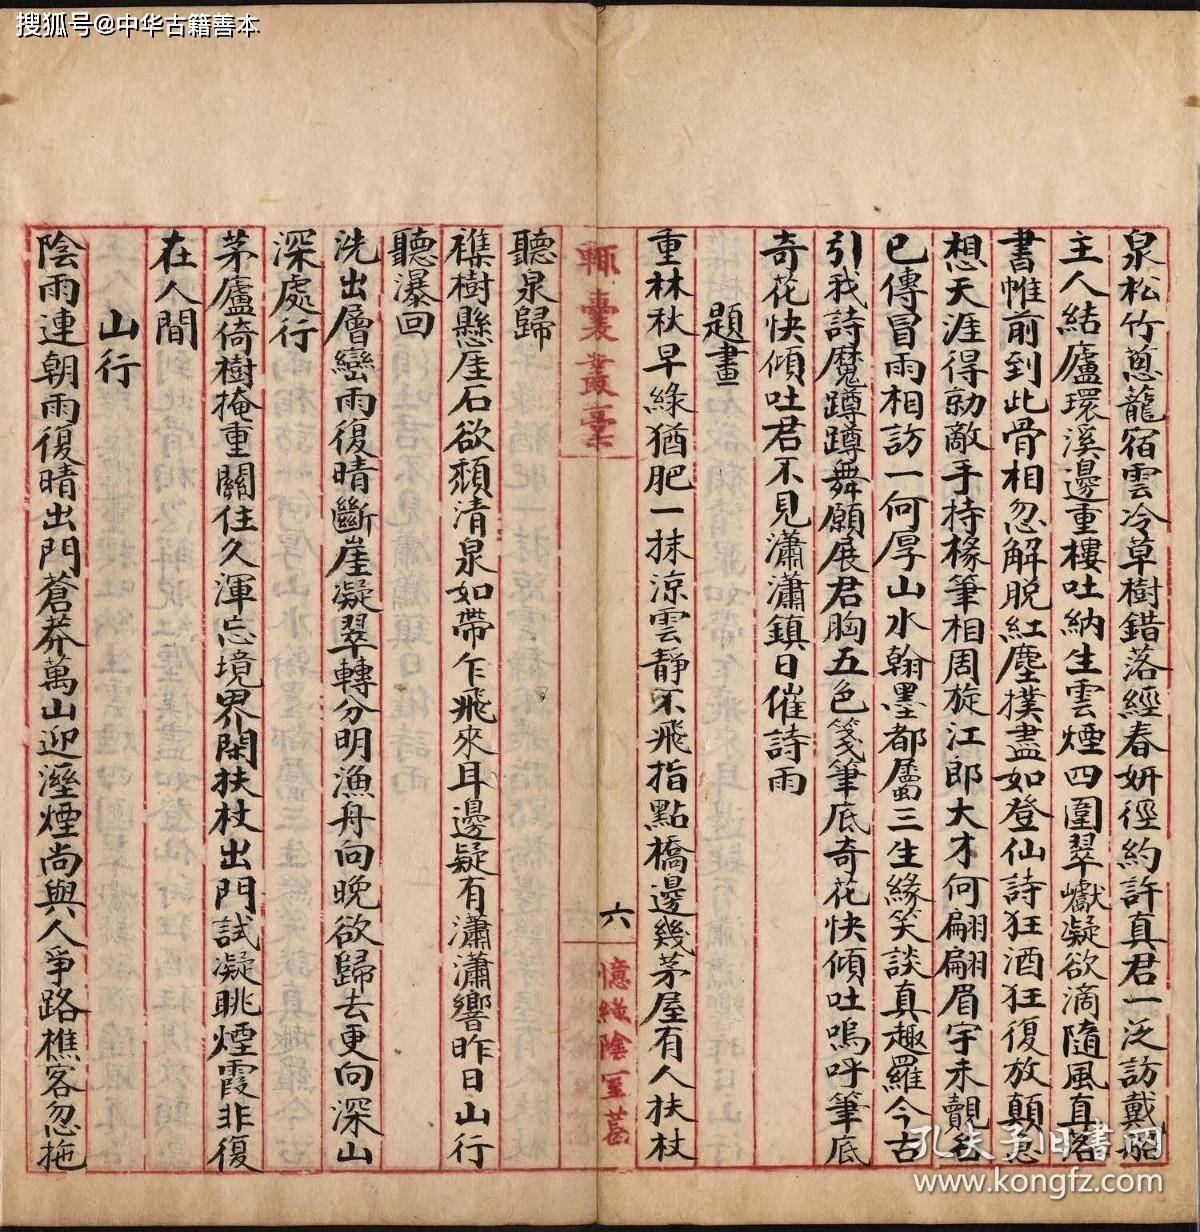 搜狐号@中华古籍善本
泉松竹蔥蘢宿雲冷草樹錯落經春妍徑約許真君一泛訪戴船
主人結廬環溪邊重樓吐納生雲煙四圍翠巘凝欲滴隨風直落
書帷前到此骨相忽解脫紅塵撲盡如登仙詩狂酒狂復放顛忽
想天涯得勍敵手持椽筆相周旋江郎大才何翩翩眉宇未覿名
已傳冒雨相訪一何厚山水翰墨都屬三生緣笑談真趣羅今古
引我詩魔蹲蹲舞願展君胸五色箋筆底奇花快傾吐嗚呼筆底
奇花快傾吐君不見瀟瀟鎮日催詩雨
題畫
重林秋早綠猶肥一抹涼雲靜不飛指點橋邊幾茅屋有人扶杖
輒囊叢稾
六
憶織陰室著
聽泉歸
襍樹懸厓石欲頹清泉如帶乍飛來耳邊疑有瀟瀟響昨日山行
聽瀑回
洗出層巒雨復晴斷崖凝翠轉分明漁舟向晚欲歸去更向深山
深處行
茅廬倚樹掩重關住久渾忘境界閑扶杖出門試凝眺煙霞非復
在人間
山行
陰雨連朝雨復晴出門蒼莽萬山迎溼煙尚與人爭路樵客忽拖
孔夫子旧书网
www.kongfz.com